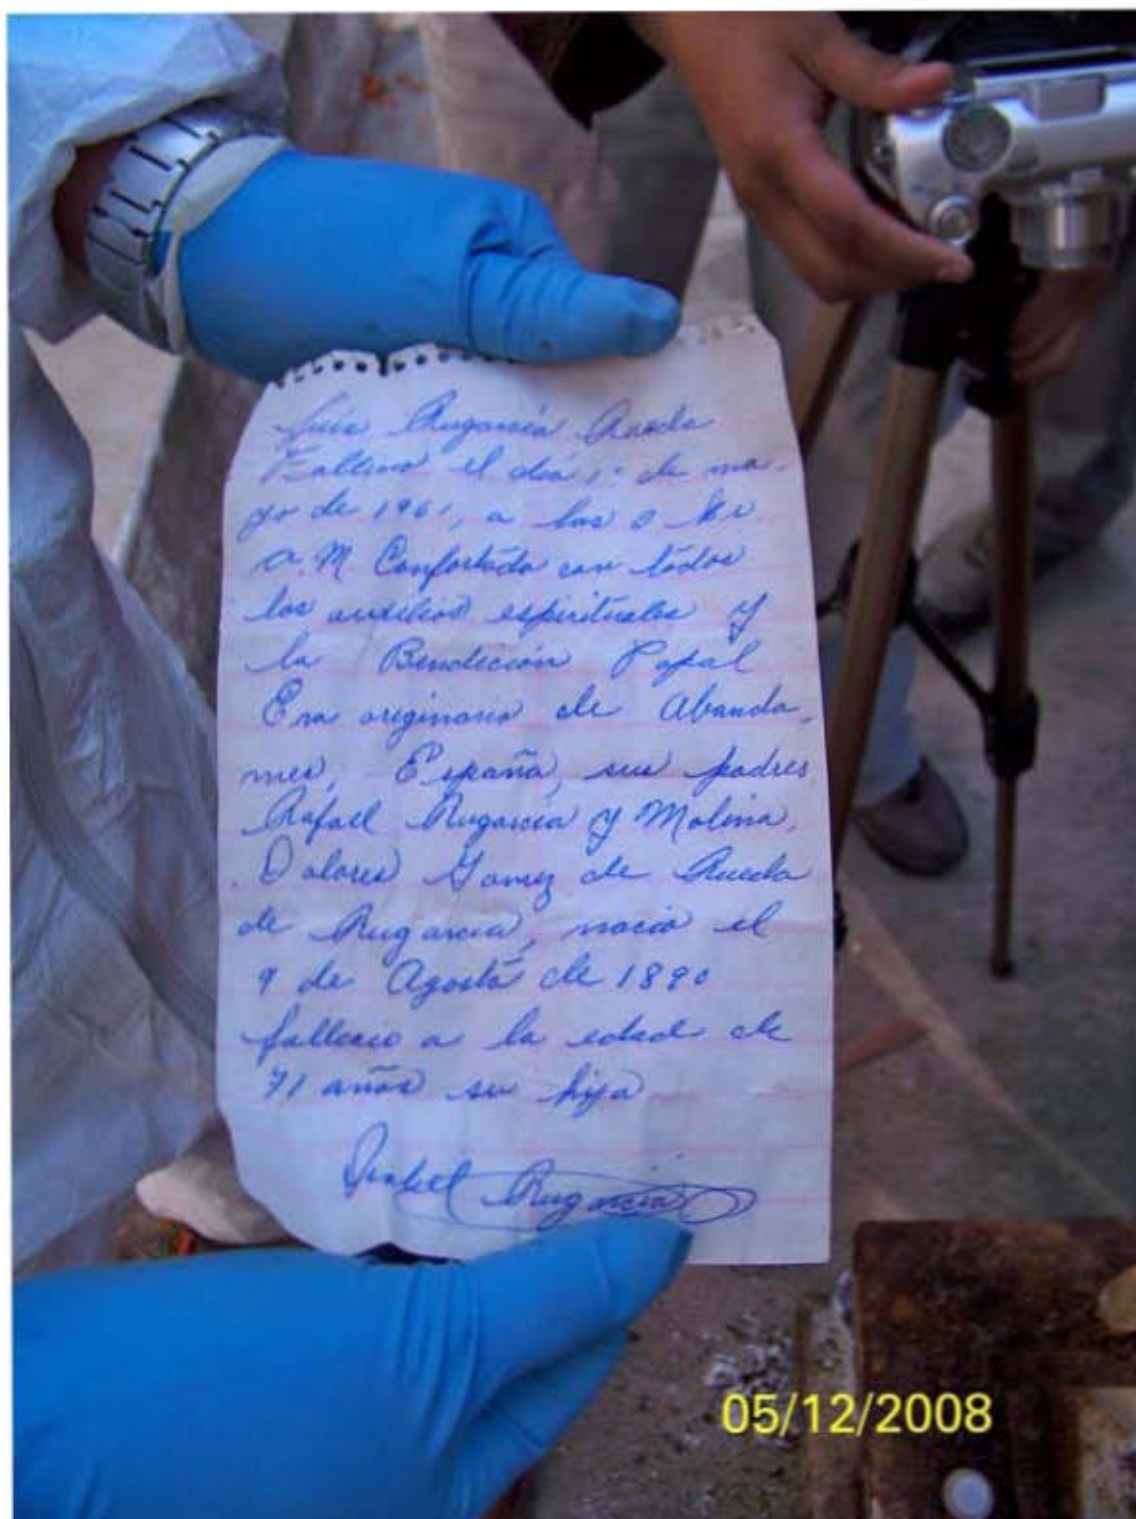 Luis Rugarcía Rueda
Fallecio el día 1º de ma-
yo de 1961, a las
A.M. Confortado con todos
los auxilios espirituales y
la Bendición Papal
Era originario de Abanda-
mes, España, sus padres
Rafael Rugarcía y Molina,
Dolores Gomez de Rueda
de Rugarcia, nació el
9 de Agosto de 1890
fallecio a la edad de
71 años su hija
Isabel Rugarcia
05/12/2008